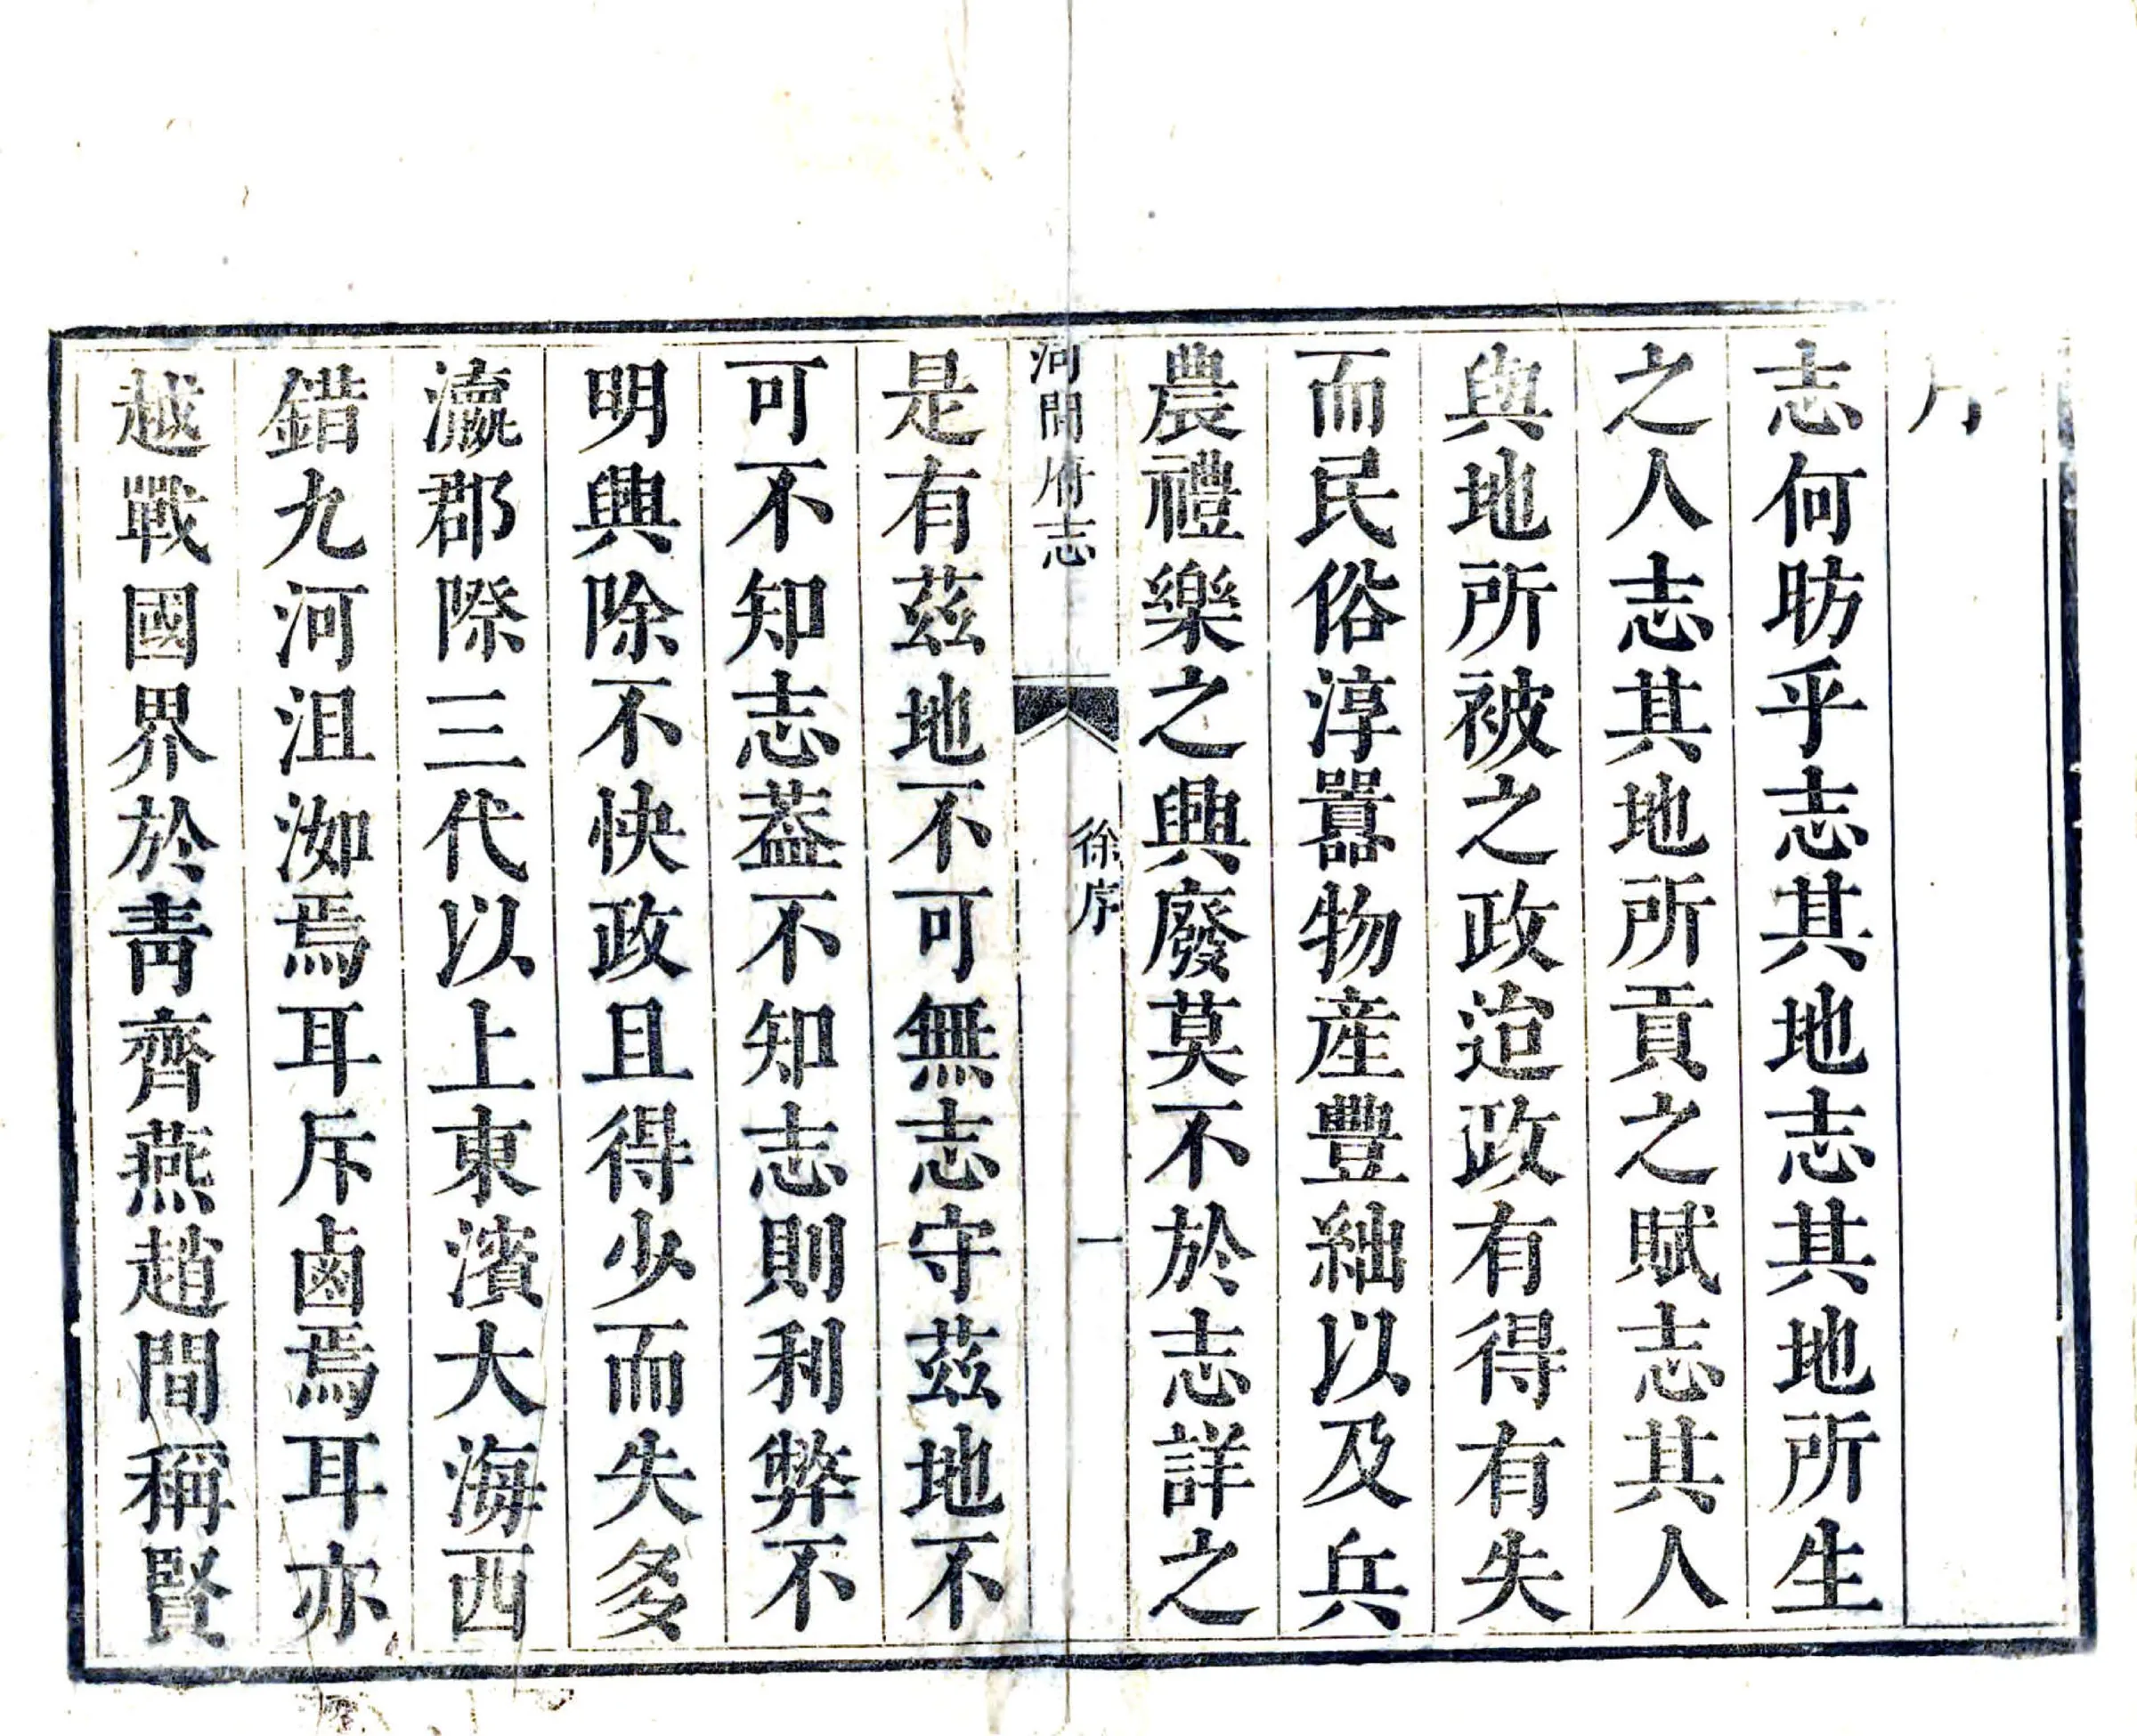 序
志何昉乎志其地志其地所生
之人志其地所貢之賦志其人
與地所被之政迨政有得有失
而民俗淳囂物産豐絀以及兵
農禮樂之興廢莫不於志詳之
河間府志
徐序
一
是有茲地不可無志守茲地不
可不知志葢不知志則利弊不
明興除不快政且得少而失多
瀛郡際三代以上東濱大海西
錯九河沮洳焉耳斥鹵焉耳亦
越戰國界於靑齊燕趙間稱賢